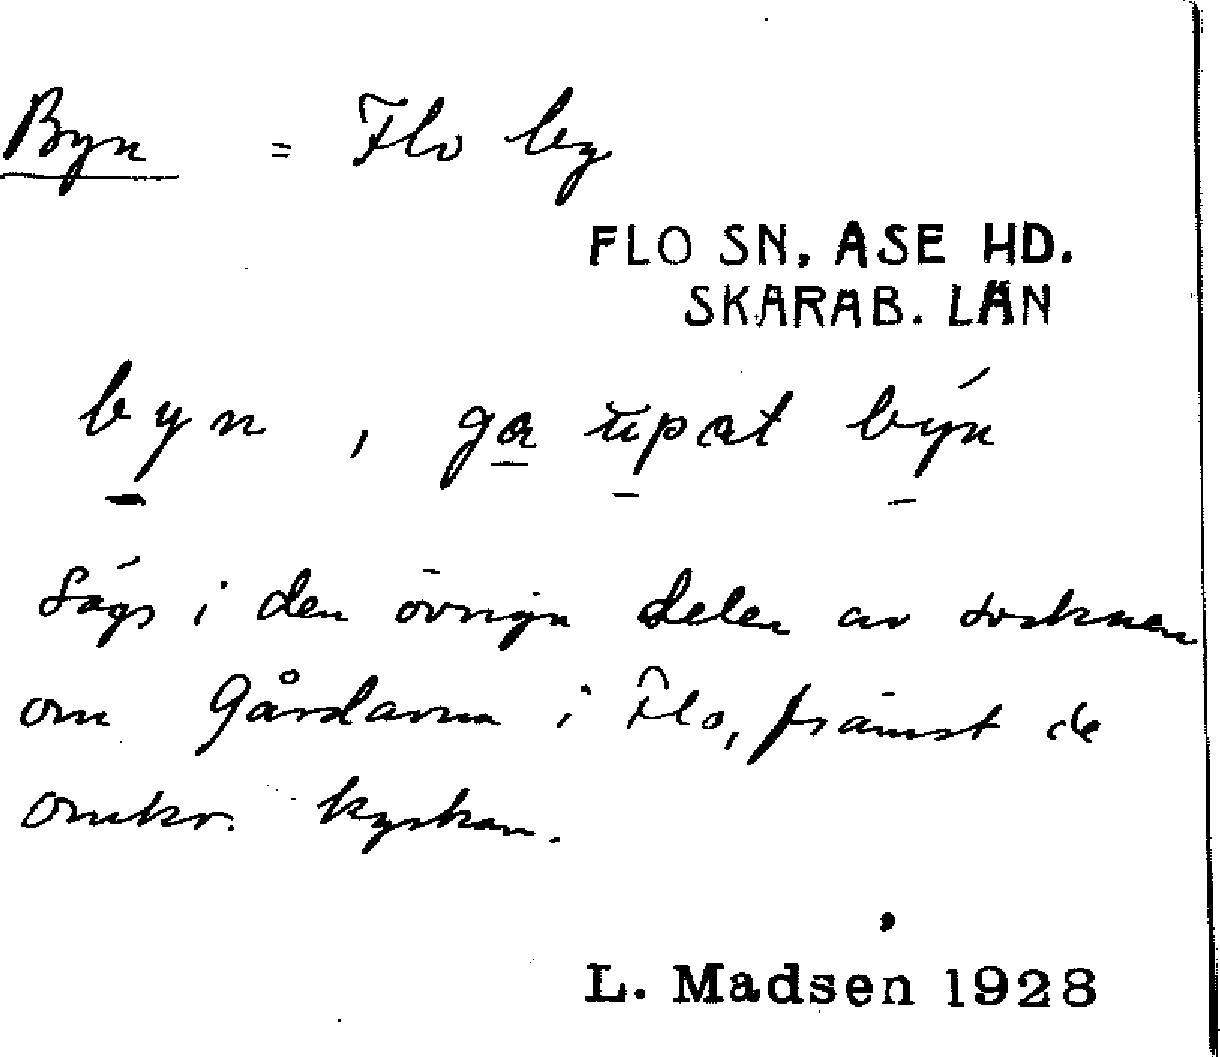 Byn = Flo by
FLO SN, ASE HD.
SKARAB. LÄN
byn, ga upat byn
Sägs i den övriga delen av socknen
om Gårdarna i Flo, främst de
omkr. kyrkan.
L. Madsen 1928